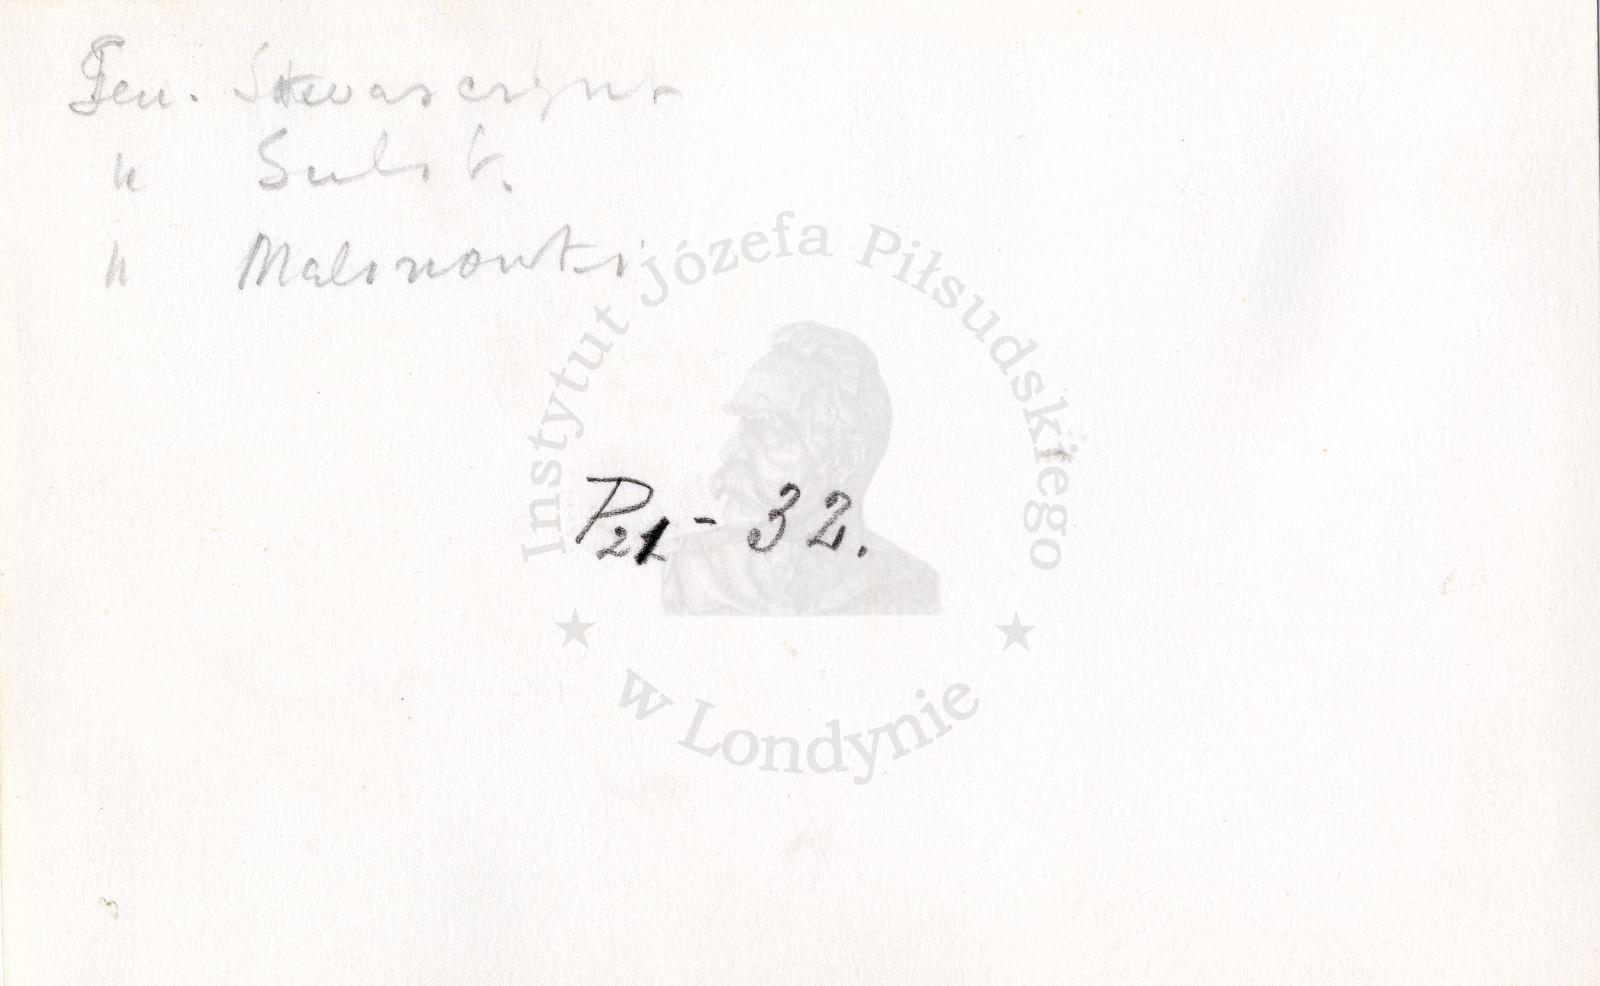 Gen. Skwarczyńs
" Sulik.
" Malinowski
Instytut Józefa Piłsudskiego
P21 - 32.
w Londynie